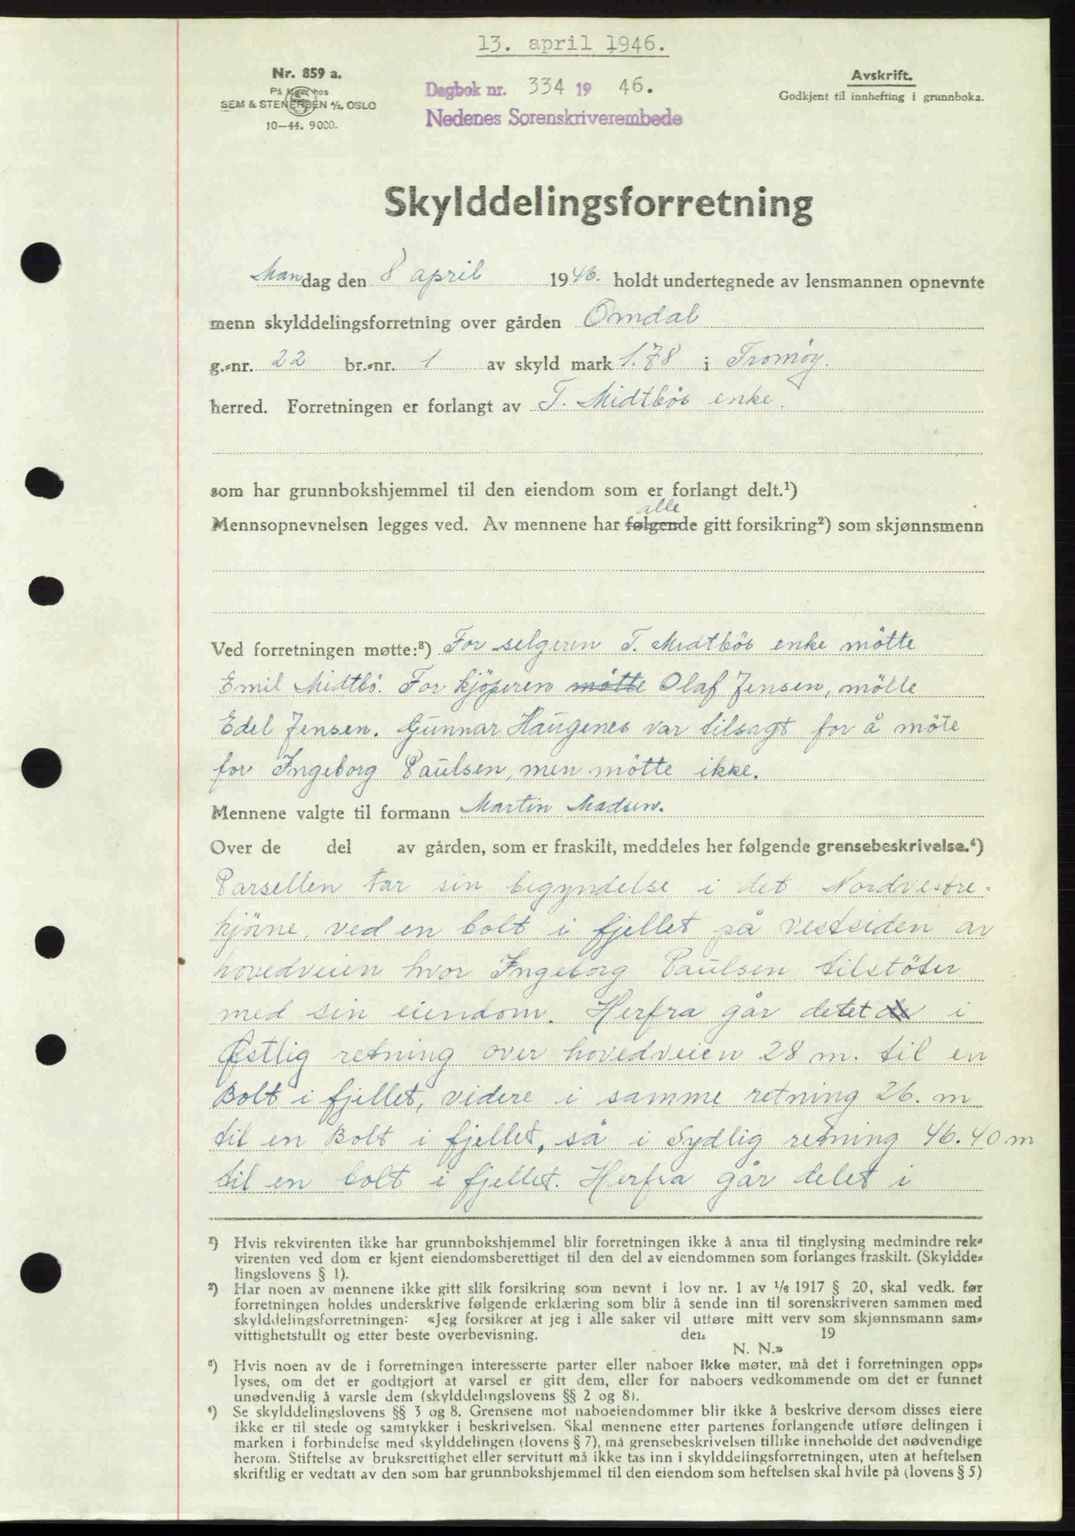 13. april 1946.
Nr. 859 a.
På lager hos
SEM & STENERSEN A/S, OSLO
10—44. 9000.
Dagbok nr. 334 19 46.
Nedenes Sorenskriverembede
Avskrift.
Godkjent til innhefting i grunnboka.
Skylddelingsforretning
Mandag den 8 april 1946. holdt undertegnede av lensmannen opnevnte
menn skylddelingsforretning over gården Omdal
g.-nr. 22 br.-nr. 1 av skyld mark 1.78 i Tromøy.
herred. Forretningen er forlangt av T. Midtbös enke.
som har grunnbokshjemmel til den eiendom som er forlangt delt.¹)
alle
Mennsopnevnelsen legges ved. Av mennene har følgende gitt forsikring²) som skjønnsmenn
Ved forretningen møtte:³) For selgeren T. Midtbös enke mötte
Emil Midtbö. For kjöperen mötte Olaf Jensen, mötte
Edel Jensen. Gunnar Haugenes var tilsagt for å möte
for Ingeborg Paulsen, men mötte ikke.
Mennene valgte til formann Martin Madsen.
Over de del av gården, som er fraskilt, meddeles her følgende grensebeskrivelse.⁴)
Parsellen tar sin begyndelse i det Nordvestre-
hjörne, ved en bolt i fjellet på vestsiden av
hovedveien hvor Ingeborg Paulsen tilstöter
med sin eiendom. Herfra går detet de i
Østlig retning over hovedveien 28 m. til en
Bolt i fjellet, videre i samme retning 26. m
til en Bolt i fjellet, så i Sydlig retning 46.40 m
til en bolt i fjellet. Herfra går delet i
¹) Hvis rekvirenten ikke har grunnbokshjemmel blir forretningen ikke å anta til tinglysing medmindre rek-
virenten ved dom er kjent eiendomsberettiget til den del av eiendommen som forlanges fraskilt. (Skyldde-
lingslovens § 1).
²) Har noen av mennene ikke gitt slik forsikring som nevnt i lov nr. 1 av 1/6 1917 § 20, skal vedk. før
forretningen holdes underskrive følgende erklæring som blir å sende inn til sorenskriveren sammen med
skylddelingsforretningen: «Jeg forsikrer at jeg i alle saker vil utføre mitt verv som skjønnsmann sam-
vittighetsfullt og etter beste overbevisning. den 19
N. N.»
³) Hvis noen av de i forretningen interesserte parter eller naboer ikke møter, må det i forretningen opp-
lyses, om det er godtgjort at varsel er gitt dem, eller for naboers vedkommende om det er funnet
unødvendig å varsle dem (skylddelingslovens §§ 2 og 8).
⁴) Se skylddelingslovens §§ 3 og 8. Grensene mot naboeiendommer blir ikke å beskrive dersom disses eiere
ikke er til stede og samtykker i beskrivelsen. Skal mennene etter partenes forlangende utføre delingen i
marken i forbindelse med skylddelingen (lovens § 7), må grensebeskrivelsen tillike inneholde det nødvendige
herom. Stiftelse av bruksrettighet eller servitutt må ikke tas inn i skylddelingsforretningen, uten at heftelsen
skriftlig er vedtatt av den som har grunnbokshjemmel til den eiendom som heftelsen skal hvile på (lovens § 5)